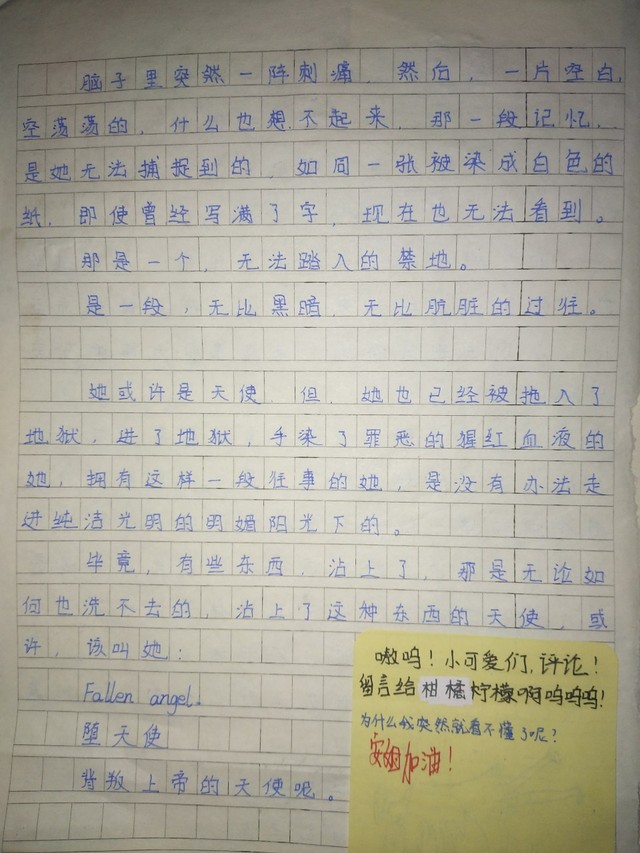 脑子里突然一阵刺痛，然后，一片空白，
空荡荡的，什么也想不起来，那一段记忆，
是她无法捕捉到的，如同一张被染成白色的
纸，即使曾经写满了字，现在也无法看到。
那是一个，无法踏入的禁地。
是一段，无比黑暗，无比肮脏的过往。
她或许是天使，但，她也已经被拖入了
地狱，进了地狱，手染了罪恶的猩红血液的
她，拥有这样一段往事的她，是没有办法走
进纯洁光明的明媚阳光下的。
毕竟，有些东西，沾上了，那是无论如
何也洗不去的，沾上了这种东西的天使，或
许，该叫她：
Fallen angel.
堕天使
背叛上帝的天使呢。
嗷呜！小可爱们，评论！
留言给柑橘柠檬啊呜呜呜！
为什么我突然就看不懂了呢？
安姐加油！